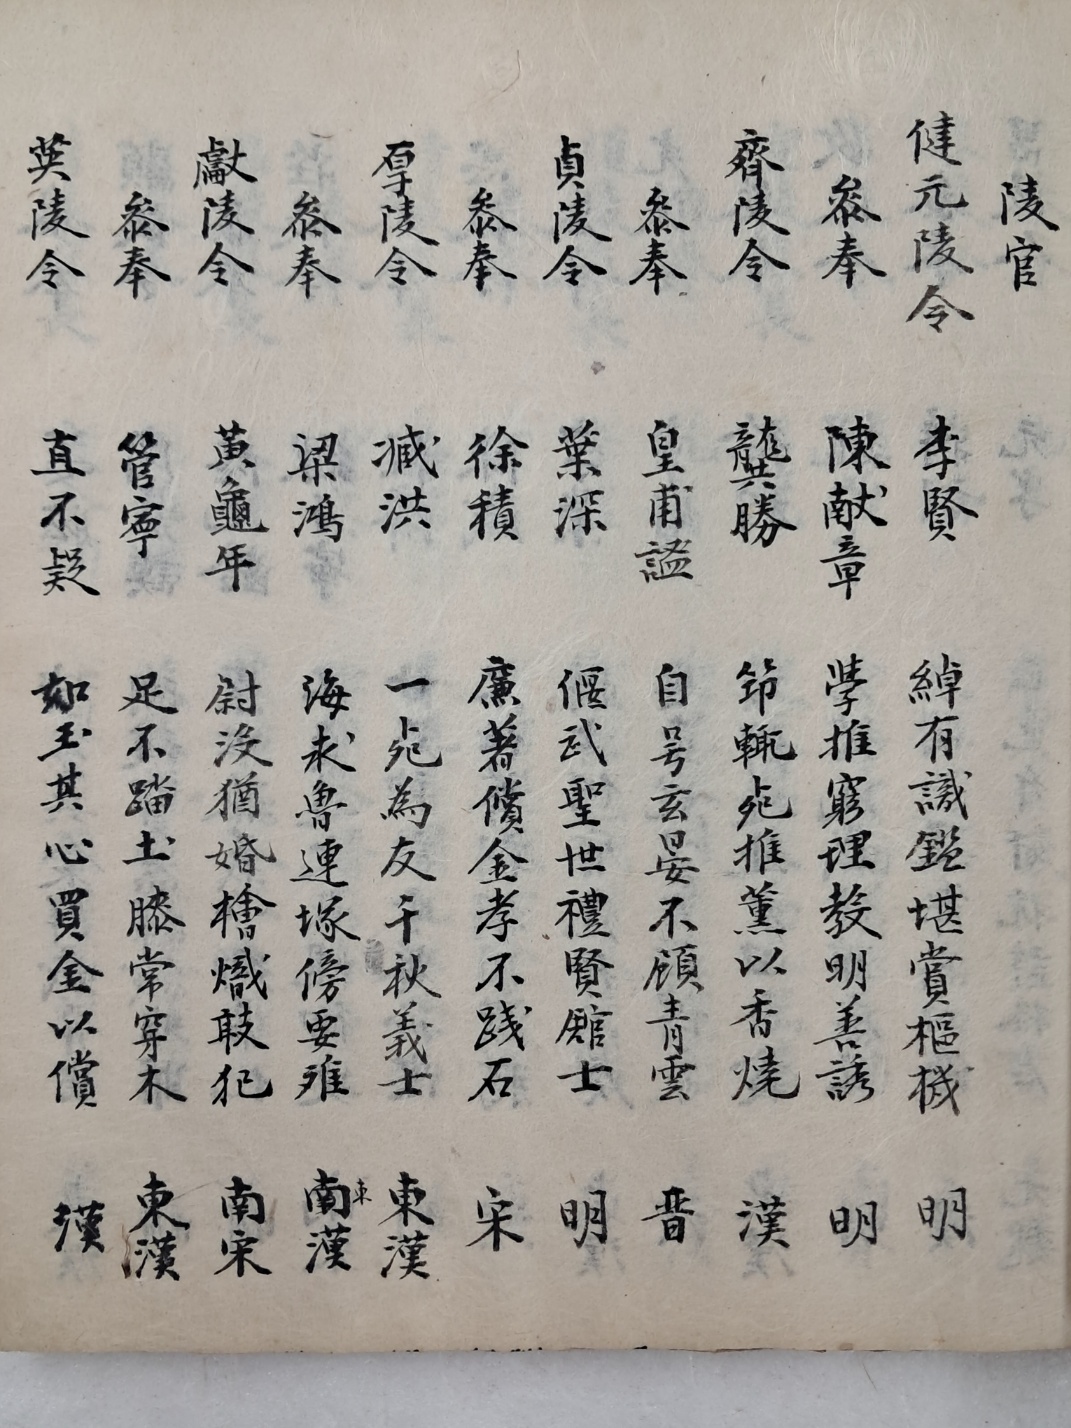 陵官
健元陵令 李賢 綽有識鑑堪賞樞機 明
叅奉 陳献章 學推窮理教明善誘 明
齊陵令 龔勝 節輙死推薰以香燒 漢
叅奉 皇甫謐 自号玄晏不顧青雲 晋
貞陵令 葉深 偃武聖世禮賢舘士 明
叅奉 徐積 廉著償金孝不踐石 宋
厚陵令 臧洪 一死為友千秋義士 東漢
叅奉 梁鴻 海求魯連塚傍要離 南漢 東
獻陵令 黃龜年 尉没猶婚檜熾敢犯 南宋
叅奉 管寧 足不踏土膝常穿木 東漢
英陵令 直不疑 如玉其心買金以償 漢